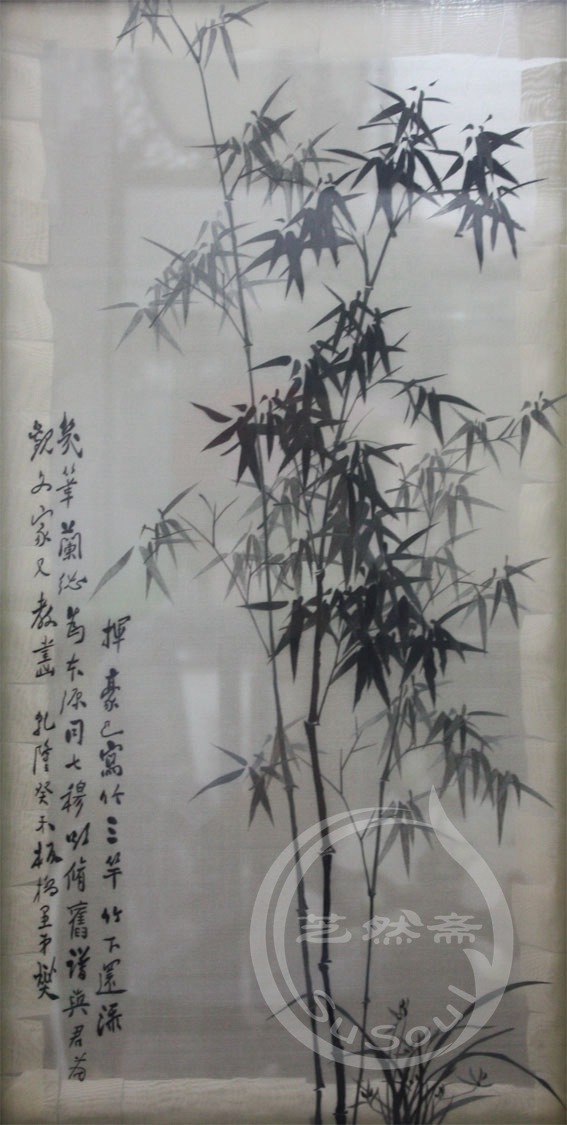 揮豪已寫竹三竿竹下還添
幾筆蘭總為本源同七穆欲脩舊譜與君看
觀文家兄教畫 乾隆癸未板橋弟燮
芝然斋
SuSoul